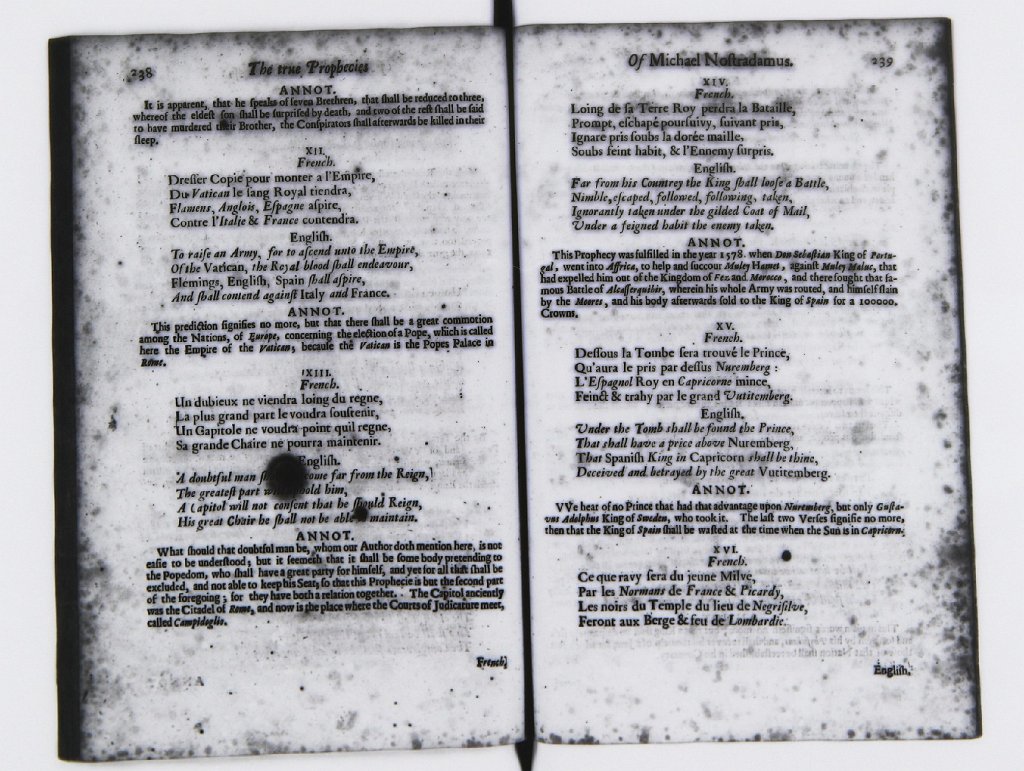 238
The true Prophecies
ANNOT.
It is apparent, that he speaks of seven Brethren, that shall be reduced to three,
whereof the eldest son shall be surprised by death, and two of the rest shall be said
to have murdered their Brother, the Conspirators shall afterwards be killed in their
sleep.
XII.
French.
Dresser Copie pour monter a l'Empire,
Du Vatican le sang Royal tiendra,
Flamens, Anglois, Espagne aspire,
Contre l'Italie & France contendra.
English.
To raise an Army, for to ascend unto the Empire,
Of the Vatican, the Royal blood shall endeavour,
Flemings, English, Spain shall aspire,
And shall contend against Italy and France.
ANNOT.
This prediction signifies no more, but that there shall be a great commotion
among the Nations, of Europe, concerning the election of a Pope, which is called
here the Empire of the Vatican; because the Vatican is the Popes Palace in
Rome.
XIII.
French.
Un dubieux ne viendra loing du regne,
La plus grand part le voudra soustenir,
Un Gapitole ne voudra point quil regne,
Sa grande Chaire ne pourra maintenir.
English.
A doubtful man come far from the Reign,
The greatest part hold him,
A Capitol will not consent that he should Reign,
His great Chair he shall not be able maintain.
ANNOT.
What should that doubtful man be, whom our Author doth mention here, is not
easie to be understood; but it seemeth that it shall be some body pretending to
the Popedom, who shall have a great party for himself, and yet for all that shall be
excluded, and not able to keep his Seat; so that this Prophecie is but the second part
of the foregoing; for they have both a relation together. The Capitol anciently
was the Citadel of Rome, and now is the place where the Courts of Judicature meet,
called Campidoglio.
French,
Of Michael Nostradamus.
239
XIV.
French.
Loing de sa Terre Roy perdra la Bataille,
Prompt, eschapé poursuivy, suivant pris,
Ignare pris soubs la dorée maille,
Soubs feint habit, & l'Ennemy surpris.
English.
Far from his Countrey the King shall loose a Battle,
Nimble, escaped, followed, following, taken,
Ignorantly taken under the gilded Coat of Mail,
Under a feigned habit the enemy taken.
ANNOT.
This Prophecy was fulfilled in the year 1578. when Don Sebastian King of Portu-
gal, went into Affrica, to help and succour Muley Hamet, against Muley Maluc, that
had expelled him out of the Kingdom of Fez and Morocco, and there fought that fa-
mous Battle of Alcasserquibir, wherein his whole Army was routed, and himself slain
by the Moores, and his body afterwards sold to the King of Spain for a 100000.
Crowns.
XV.
French.
Dessous la Tombe sera trouvé le Prince,
Qu'aura le pris par dessus Nuremberg:
L'Espagnol Roy en Capricorne mince,
Feinct & trahy par le grand Vutitemberg.
English.
Under the Tomb shall be found the Prince,
That shall have a price above Nuremberg,
That Spanish King in Capricorn shall be thine,
Deceived and betrayed by the great Vutitemberg.
ANNOT.
VVe hear of no Prince that had that advantage upon Nuremberg, but only Gusta-
vus Adolphus King of Sweden, who took it. The last two Verses signifie no more,
then that the King of Spain shall be wasted at the time when the Sun is in Capricorn.
XVI.
French.
Ce que ravy sera du jeune Milve,
Par les Normans de France & Picardy,
Les noirs du Temple du lieu de Negrisilve,
Feront aux Berge & feu de Lombardie.
English.